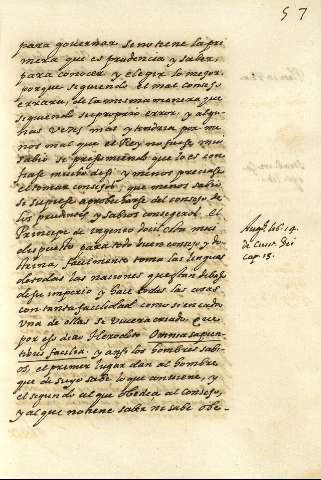 57
para governar, si no tiene la pri
mera que es prudencia y saber,
para conocer y elegir lo mejor,
porque siguiendo el mal consejo
errara, de la misma manera que
siguiendo su proprio error, y algu-
nas vezes mas y tendria por me
nos mal que el Rey no fuese muy
sabio se presumiendo que lo es con
fiase mucho desi, y menos preciase
el tomar consejo, que menos sabio
se supiese aprobecharse del consejo de
los prudentes y sabios consegeros. el
Principe de ingenio docil esta mui
dispuesto para todo buen consejo y do-
trina, facilmente toma las lenguas
de todas las naciones que estan debajo
de su imperio y hace todas las cosas
con tanta facilidad como si en cada
una de ellas se uviera criado que
por eso dixo Heraclito Omnia sapien
tibus facilia, y ansi los hombres sabi-
os, el primer lugar dan al hombre
que de suyo sabe lo que conviene, y
el segundo al que obedece al consejo,
y al que no tiene saber ni sabe obe-
Aug. lib. 19.
de Civit. Dei
cap. 13.